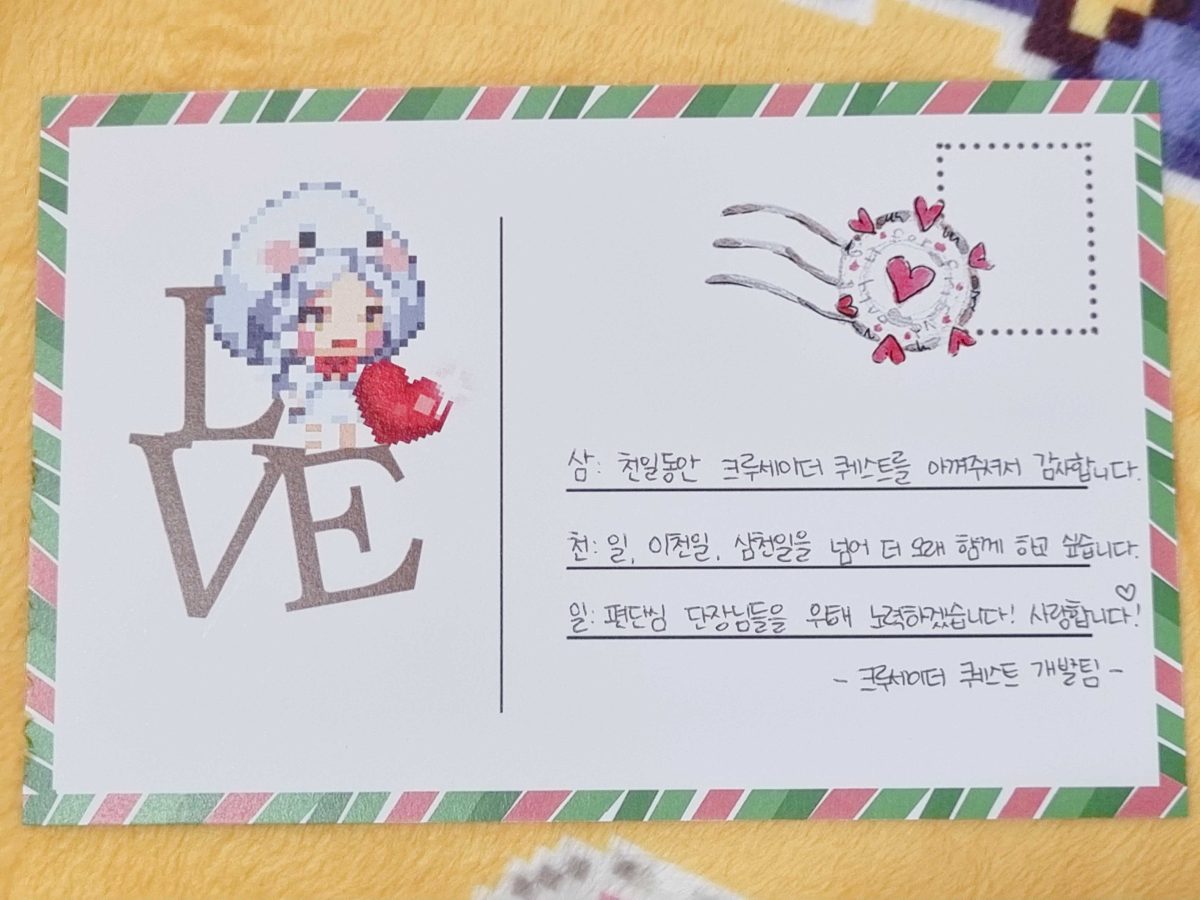 LOVE
삼: 천일동안 크루세이더 퀘스트를 아껴주셔서 감사합니다.
천: 일, 이천일, 삼천일을 넘어 더 오래 함께 하고 싶습니다.
일: 편단심 단장님들을 위해 노력하겠습니다! 사랑합니다♡!
- 크루세이더 퀘스트 개발팀 -